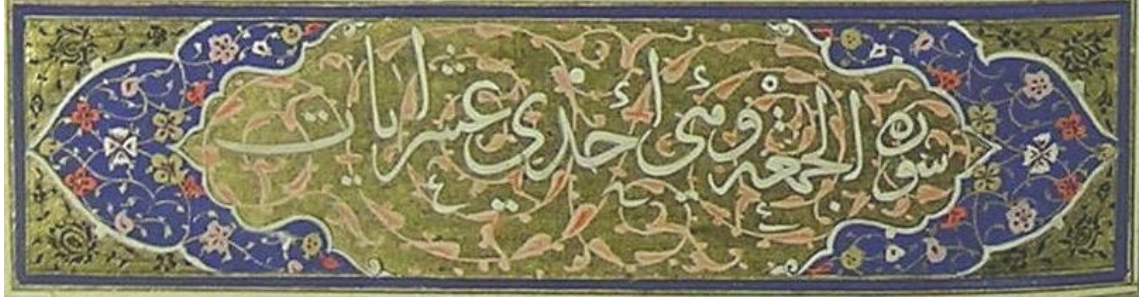 سورة الجمعة وهي أحدى عشر ايات